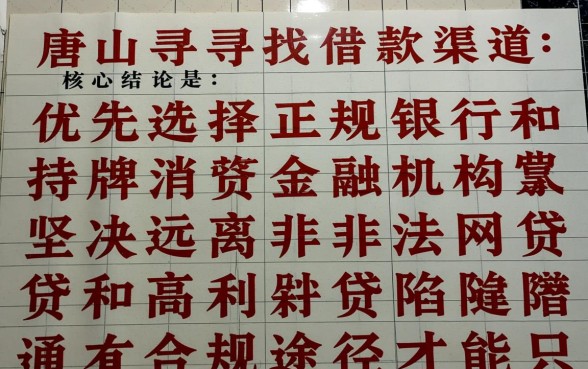 唐山寻寻找借款渠道：
核心结论是：
优先选择正规银行和
持牌消资金融机构
坚决远离非非法网贷
贷和高利贷陷
通有合规途径才能只